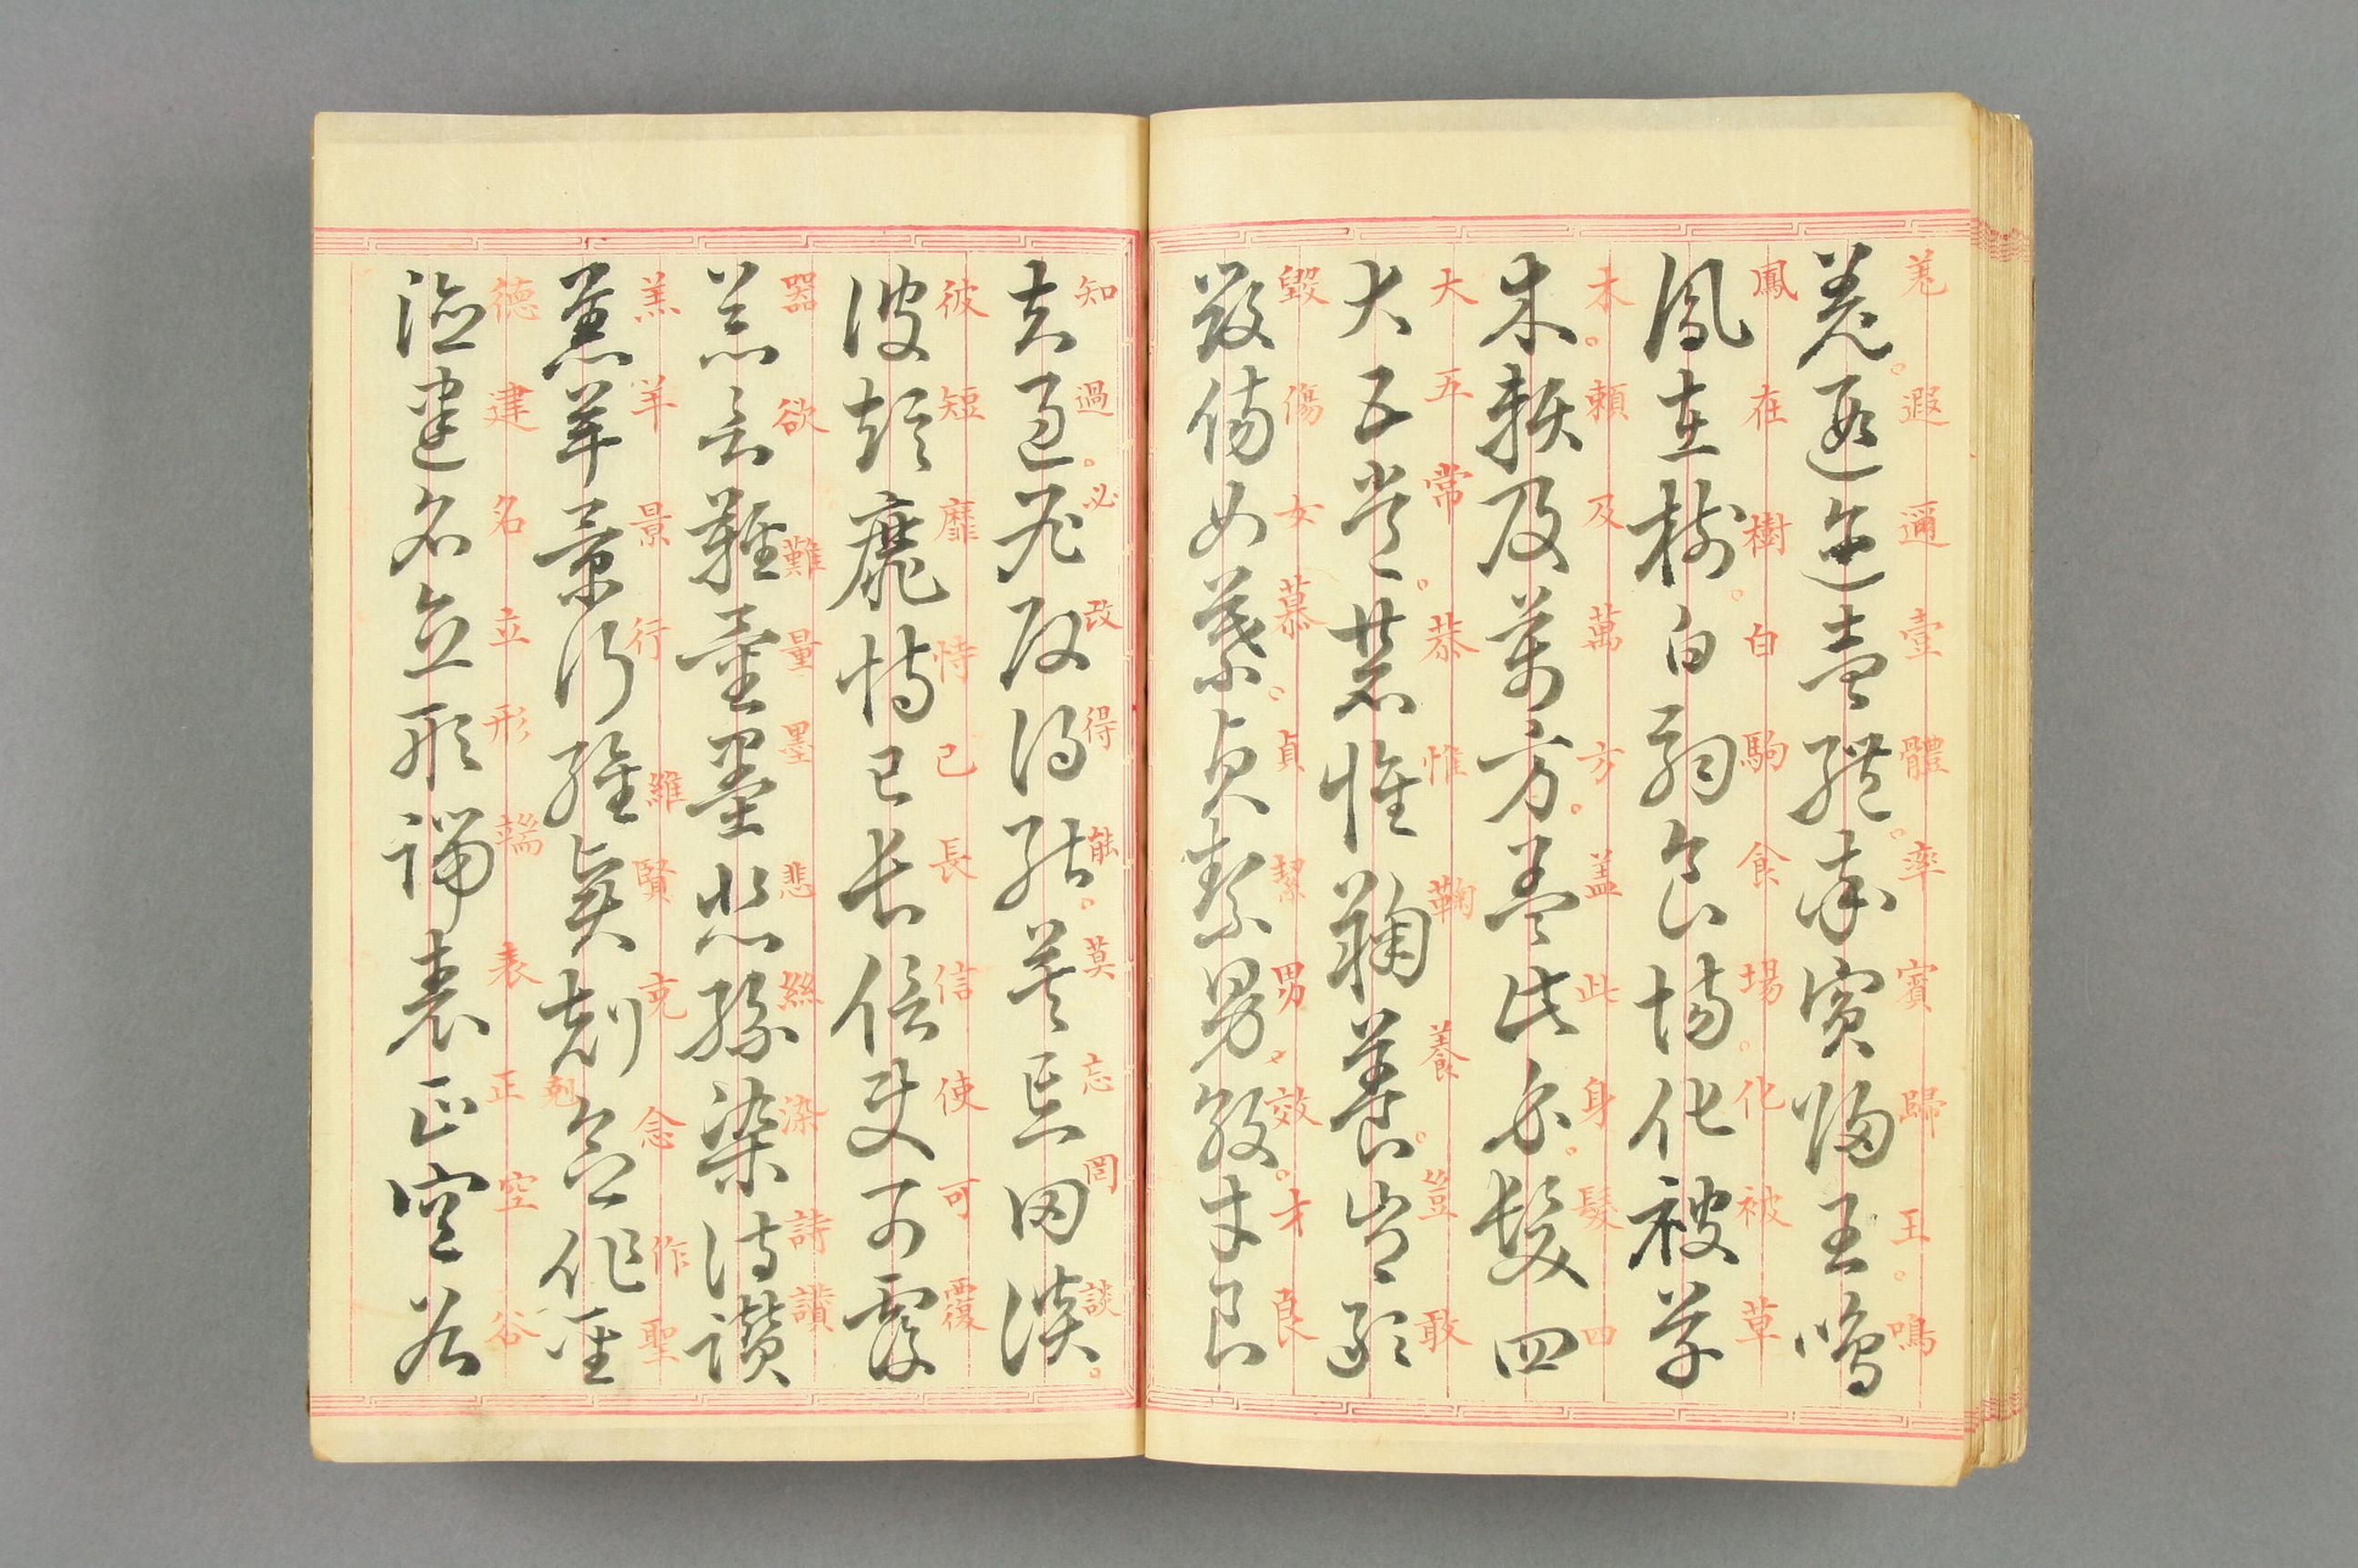 羌遐邇壹體率賓歸王鳴
羌遐邇壹體率賓歸王鳴
鳳在樹白駒食場化被草
鳳在樹白駒食場化被草
木賴及萬方盖此身髮四
木賴及萬方盖此身髮四
大五常恭惟鞠養豈敢
大五常恭惟鞠養豈敢
毀傷女慕貞絜男效才良
毀傷女慕貞絜男效才良
知過必改得能莫忘罔談
知過必改得能莫忘罔談
彼短靡恃己長信使可覆
彼短靡恃己長信使可覆
器欲難量墨悲絲染詩讚
器欲難量墨悲絲染詩讚
羔羊景行維賢克念作聖
羔羊景行維賢剋念作聖
剋
德建名立形端表正空谷
德建名立形端表正空谷